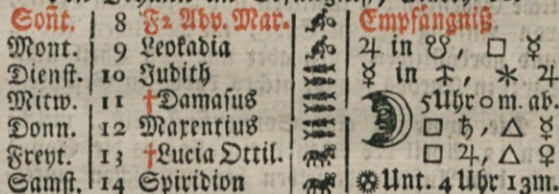 Soñt. 8 F2 Adv. Mar. Empfängniß.
Mont. 9 Leokadia ♃ in ☋, □ ☿
Dienst. 10 Judith ☿ in ⚹ ♃
Mitw. 11 †Damasus 5Uhr 0 m. ab.
Donn. 12 Maxentius □ ♄, △ ☿
Freyt. 13 †Lucia Ottil. □ ♃, △ ♀
Samst. 14 Spiridion Unt. 4 Uhr 13m